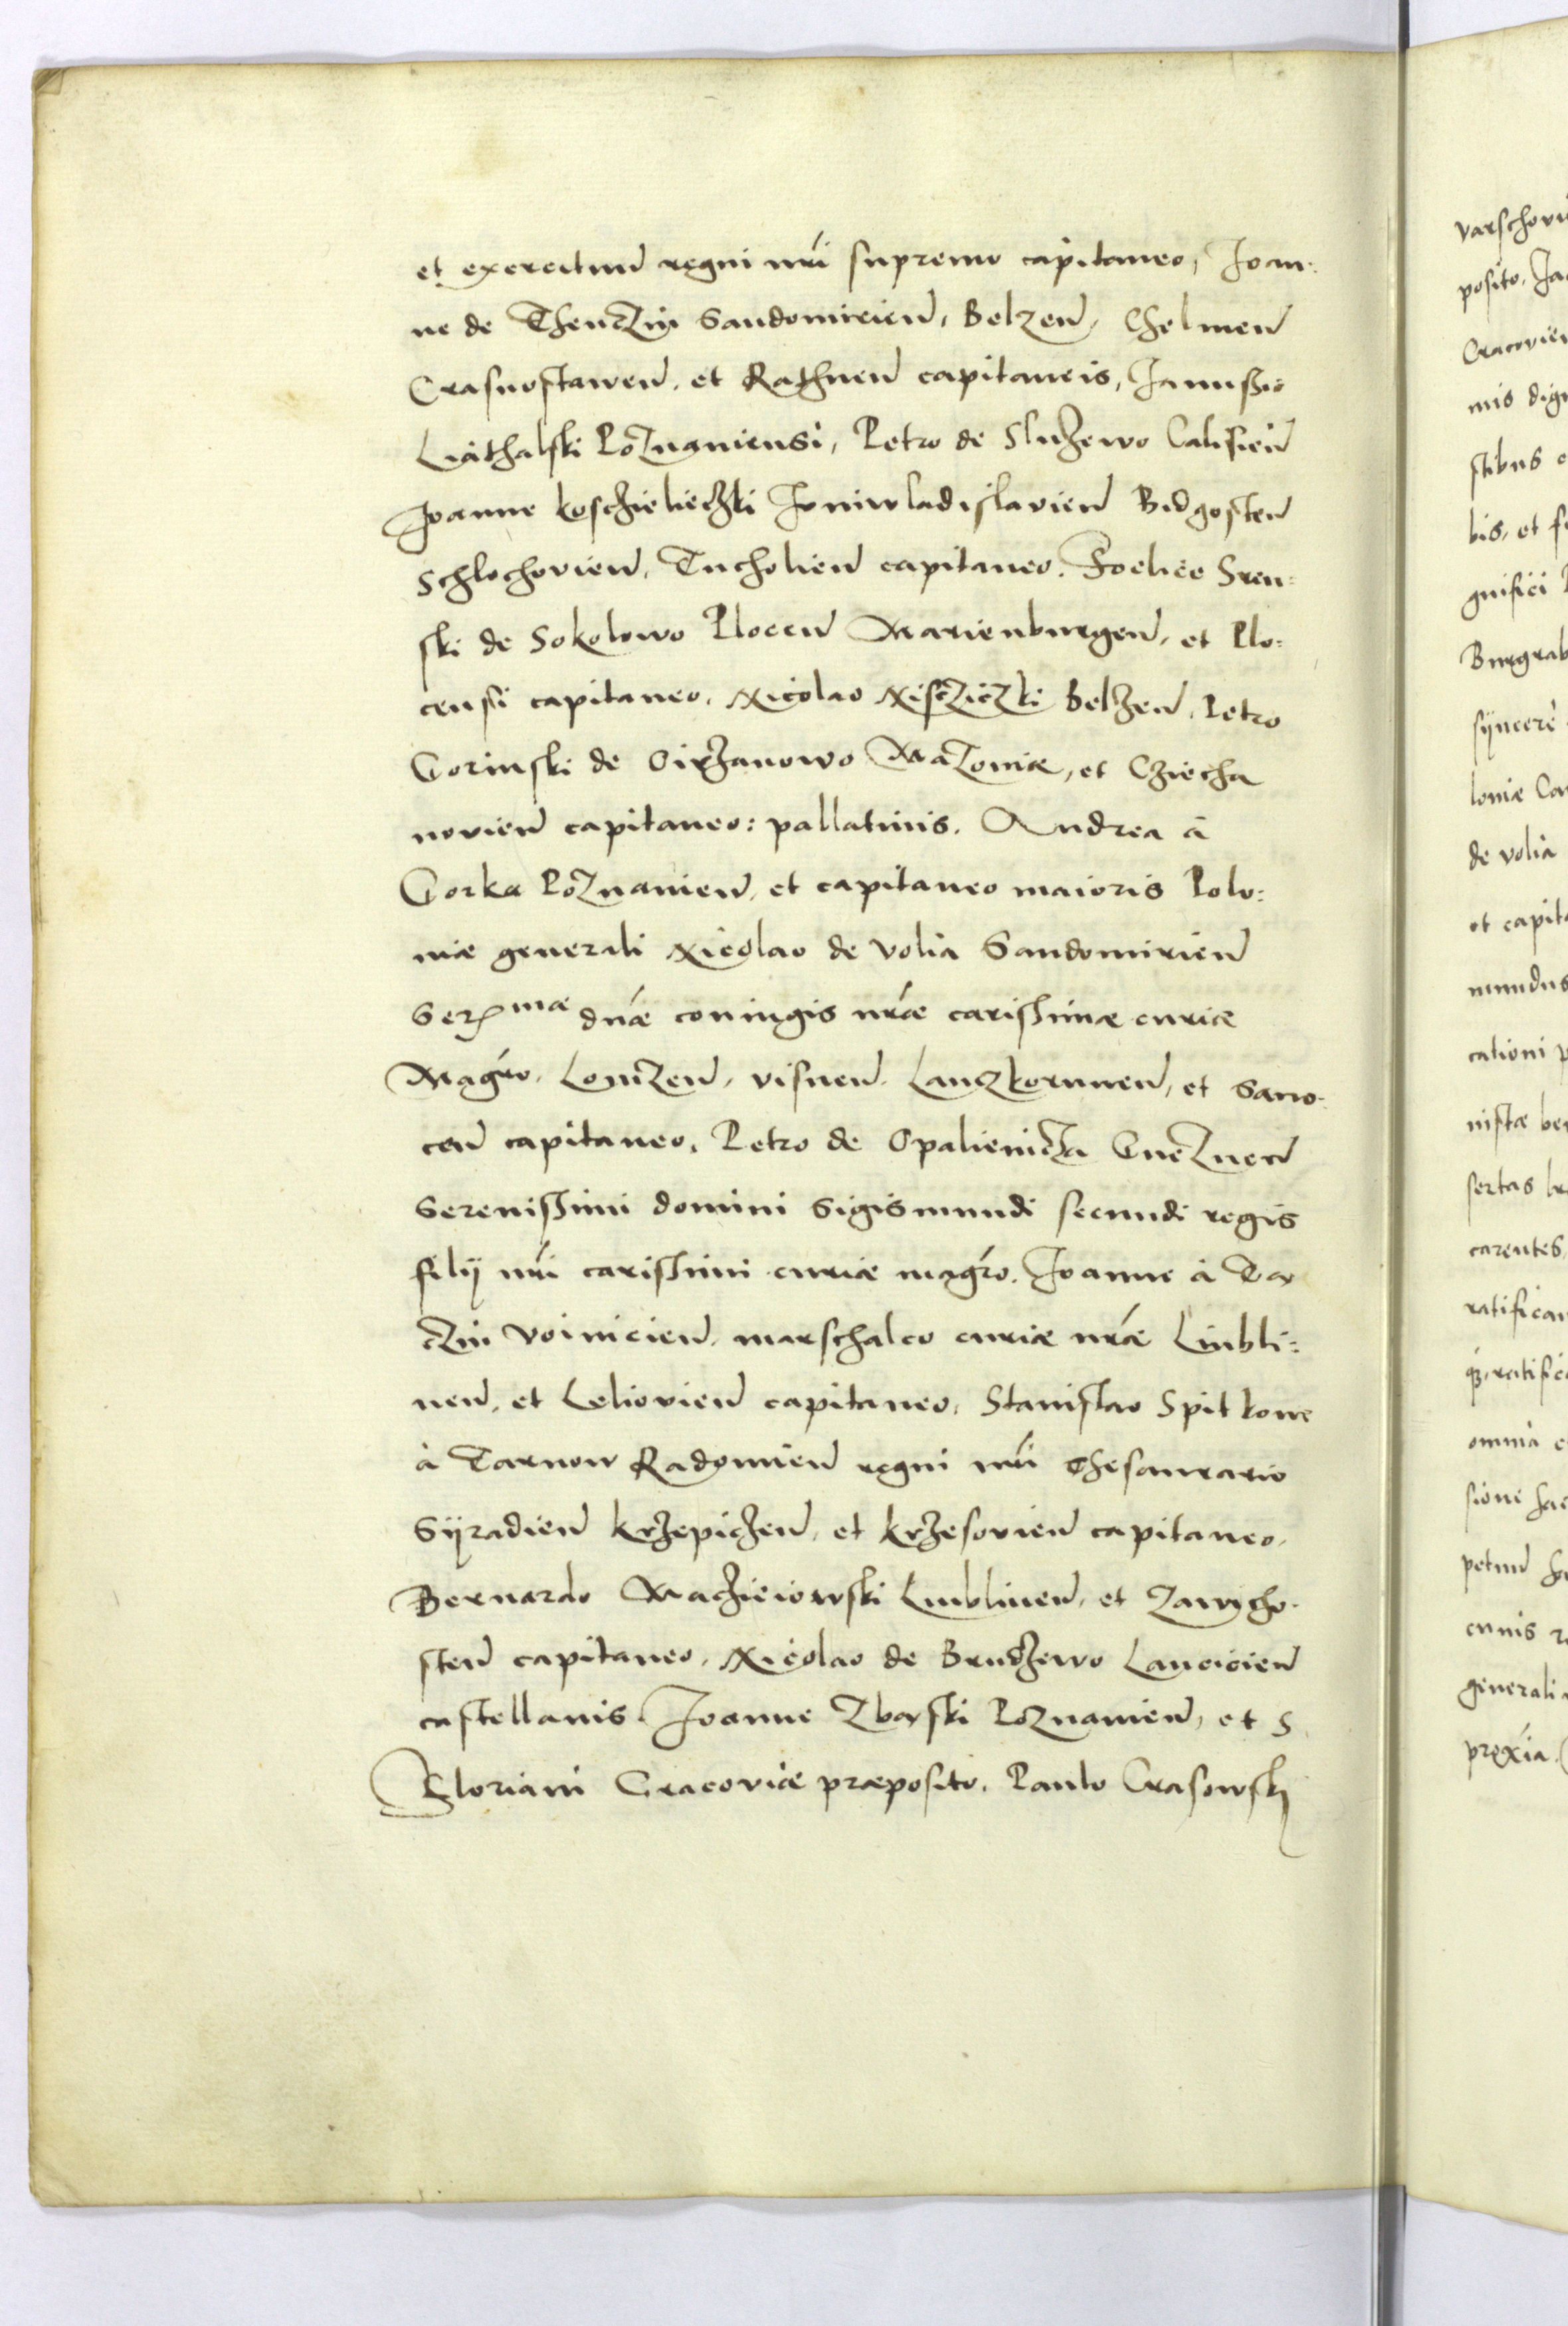 et exercituū regni nr̄i supremo capitaneo, Joan:
ne de Thenczin Sandomirień, Belzeń, Chelmeń
Crasnostaweń, et Rathneń capitaneis, Janussio
Lathalski Poznaniensi, Petro de Sluzewo Calisień
Joanne Koschieliechki Juniwladislavień Bidgosteń
Schlochovień, Tucholień capitaneo. Foelice Sren:
ski de Sokolowo Ploceń Marienburgeń, et Plo:
censi capitaneo, Nicolao Nisczicki Belzeń, Petro
Gorinski de Oirzanowo Mazoviæ, et Cziecha
novień capitaneo: pallatinis. Andrea à
Gorka Poznanień, et capitaneo maioris Polo:
niæ generali Nicolao de Volia Sandomirień
Ser^mæ dn̄æ coniugis nr̄æ carissimæ curiæ
Magr̄o, Lomzeń, Visneń, Lanczkoruneń, et Sano:
ceń capitaneo, Petro de Opalienicza Gnezneń
Serenissimi domini Sigismundi secundi regis
filij nr̄i carissimi curiæ magr̄o. Joanne à Ta
czin Voinicień, marschalco curiæ nr̄æ Liubli:
neń, et Leliovień capitaneo, Stanislao Spitkone
à Tarnow Radomień regni nr̄i thesaurario
Syradień Krzepiczeń, et Krzesovień capitaneo,
Bernardo Machieiowski Lublineń, et Zawicho:
steń capitaneo, Nicolao de Brudzewo Lancicień
castellanis. Joanne Zbaski Poznanień, et S.
Floriani Cracoviæ præposito, Paulo Crasowski
varschovi
posito, Ja
Cracovień
mis dig
stibus
bis, et
gnifici
Burgrab
syncerè
loniæ Ca
de volia
et capit
mundus
cationi
nistæ be
sertas
carentes,
ratifica
omnia
sione
petuū
cunis
generali